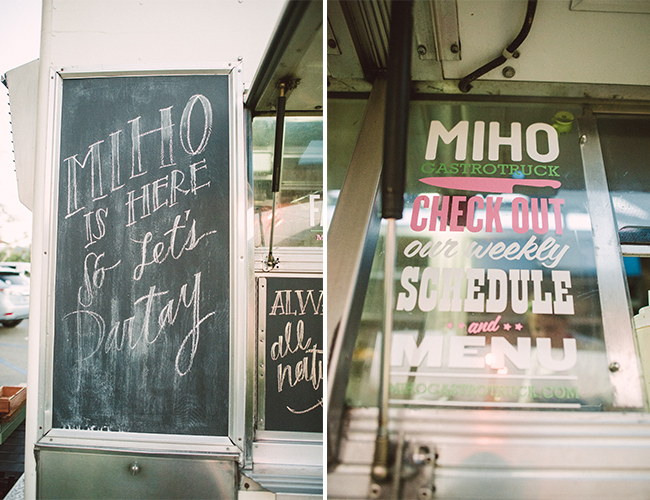 MIHO
IS HERE
So Let's
Partay
ALWA
all
Natu
MIHO
GASTROTRUCK
CHECK OUT
our weekly
SCHEDULE
and
MENU
MIHOGASTROTRUCK.COM